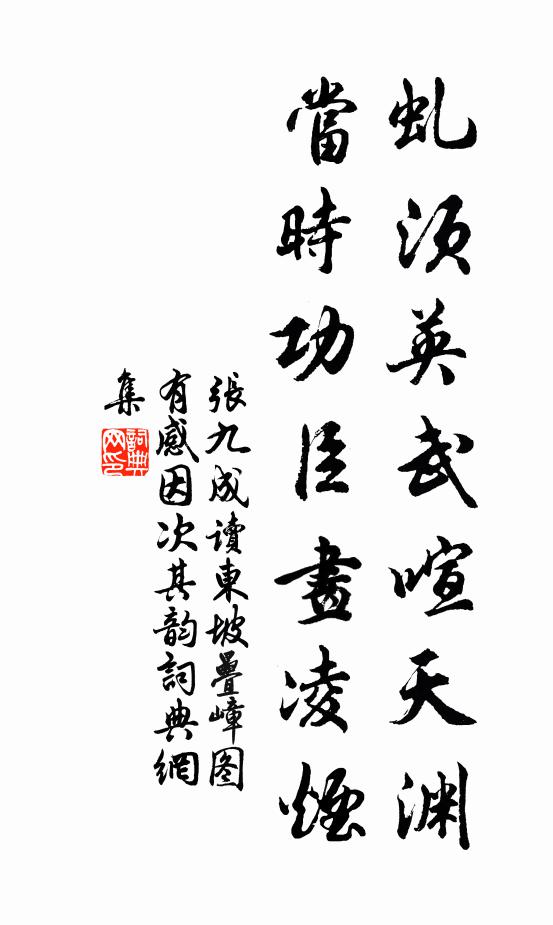 虬須英武喧天淵
當時功臣畫凌煙
張九成讀東坡疊嶂图
有感因次其韵詞典網
集
詞典
网印